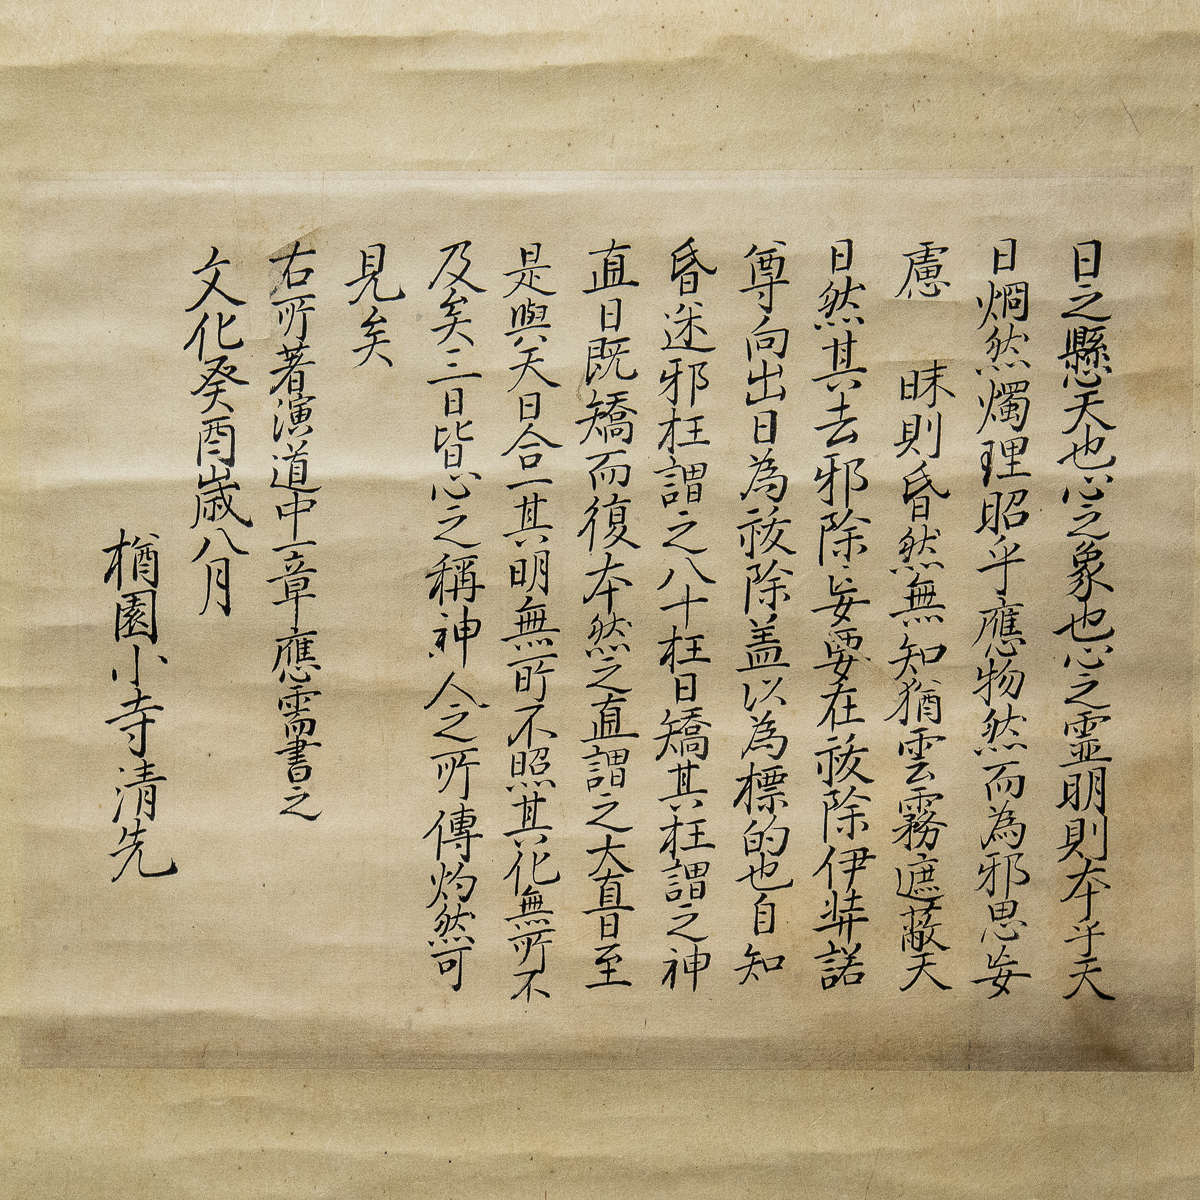 日之懸天也心之象也心之霊明則本乎天
日烱然燭理昭乎應物然而為邪思妄
慮　昧則昏然無知猶雲霧遮蔽天
日然其去邪除妄要在祓除伊弉諾
尊向出日為祓除盖以為標的也自知
昏迷邪枉謂之八十枉日矯其枉謂之神
直日既矯而復本然之直謂之大直日至
是與天日合一其明無所不照其化無所不
及矣三日皆心之稱神人之所傳灼然可
見矣
右所著演道中一章應需書之
文化癸酉歳八月
楢園小寺清先